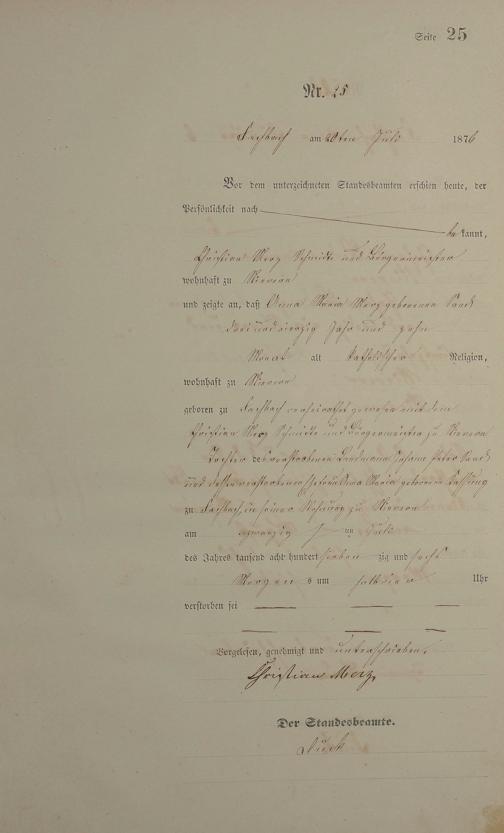 Seite 25
Nr. 25
Fachbach am 20ten Juli 1876
Vor dem unterzeichneten Standesbeamten erschien heute, der
Persönlichkeit nach
be kannt,
Christian Merz Schmidt und Bürgermeister
wohnhaft zu Nievern
und zeigte an, daß Anna Maria Merz geborenen
drei und vierzig Jahr und zehn
Monat alt katholischer Religion,
wohnhaft zu Nievern
geboren zu Fachbach verheirathet gewesen mit dem
Christian Merz Schmidt und Bürgermeister zu Nievern
Tochter des verstorbenen Johann Peter
und dessen verstorbenen Anna Maria geborenen
zu Fachbach, in seiner Wohnung zu Nievern
am zwanzig ten Juli
des Jahres tausend acht hundert sieben zig und sechs
Morgen s um halb vier Uhr
verstorben sei
Vorgelesen, genehmigt und unterschrieben.
Christian Merz
Der Standesbeamte.